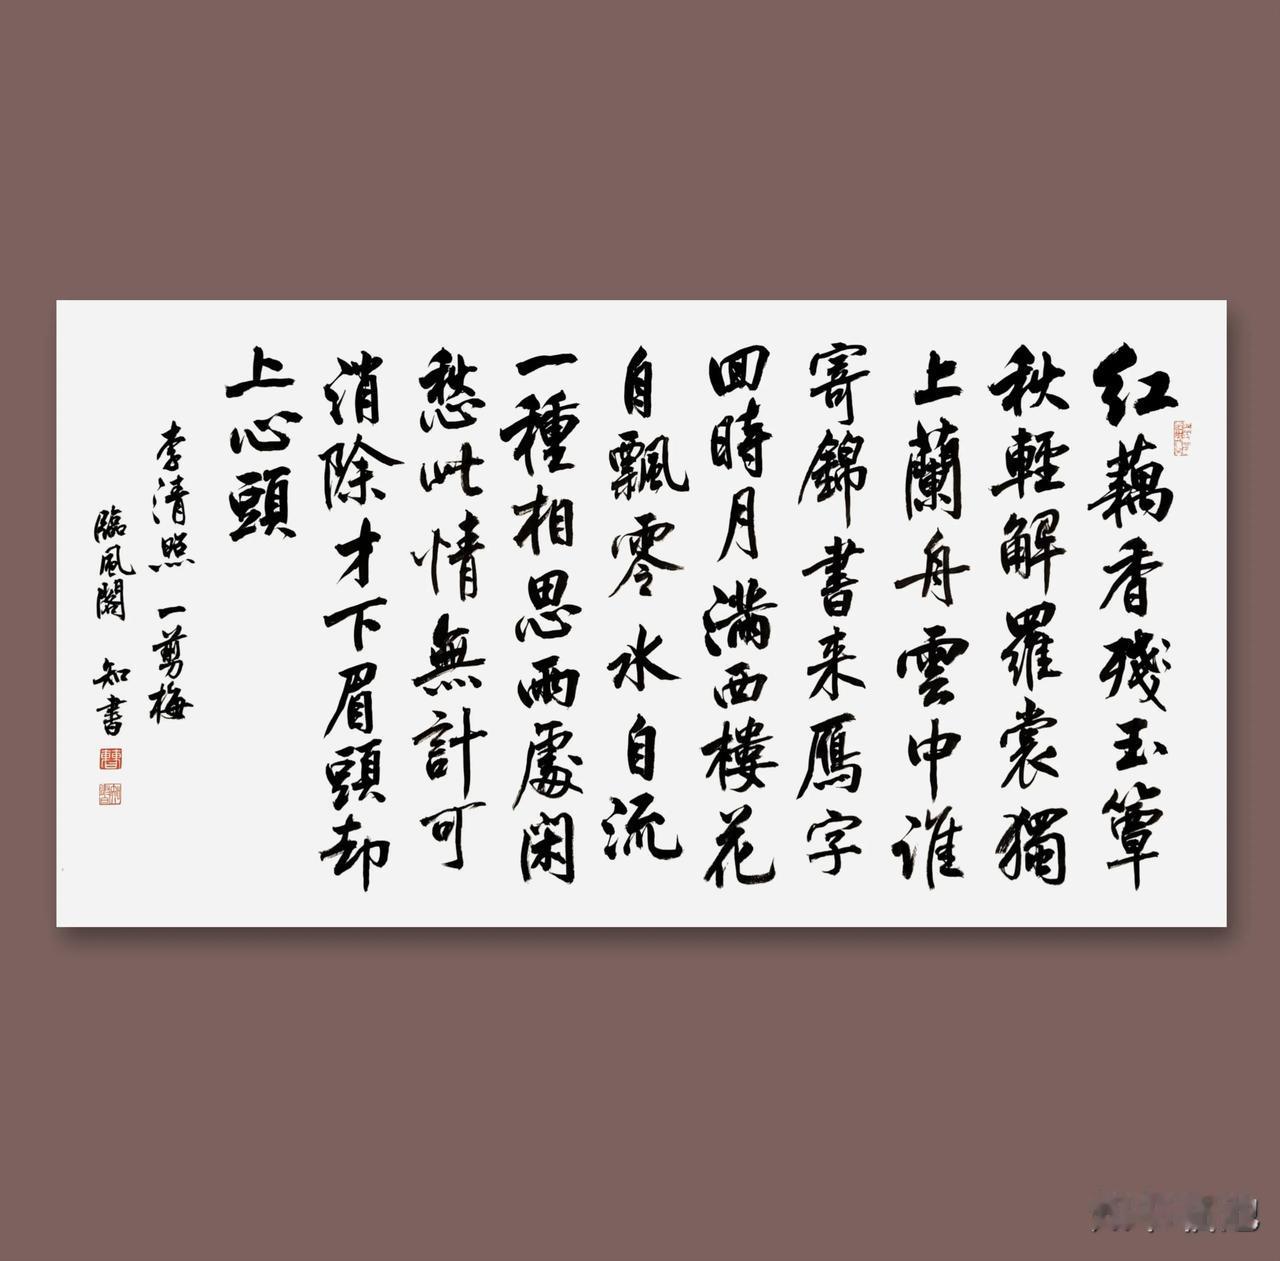 红藕香殘玉簟
秋輕解羅裳獨
上蘭舟雲中誰
寄錦書来鴈字
回時月满西樓花
自飄零水自流
一種相思兩處閑
愁此情無計可
消除才下眉頭却
上心頭
李清照一剪梅
臨風閣 知書